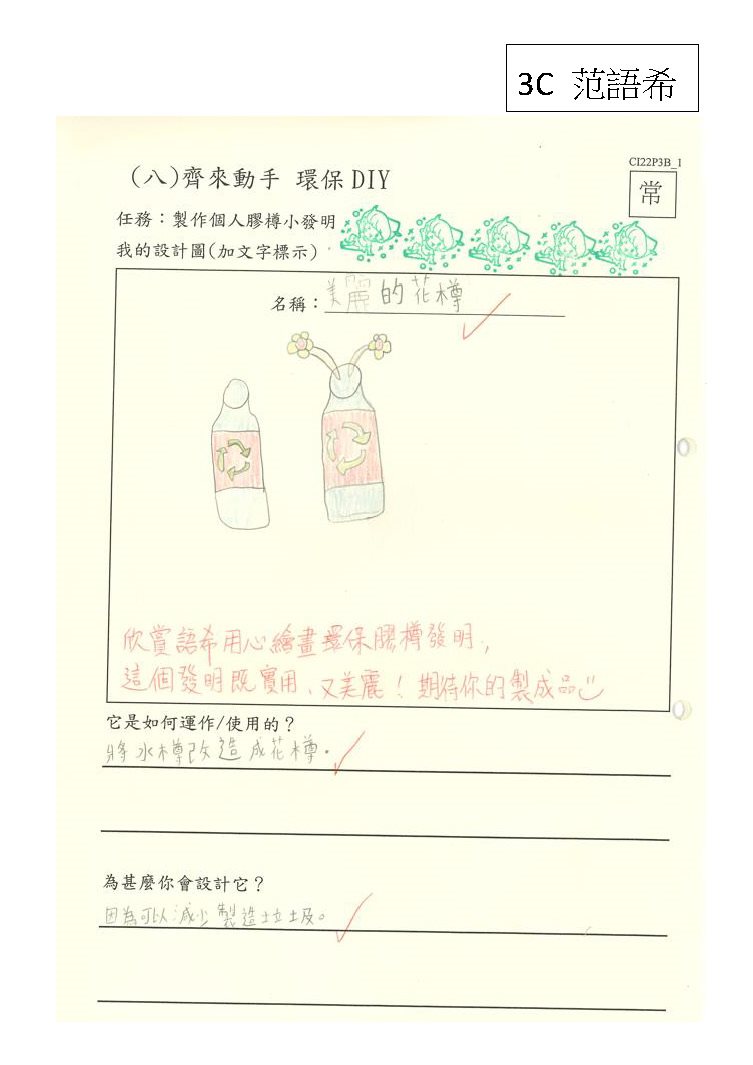 3C 范語希
CI22P3B_1
常
(八)齊來動手 環保DIY
任務：製作個人膠樽小發明
我的設計圖(加文字標示)
名稱：美麗的花樽
欣賞語希用心繪畫環保膠樽發明，
這個發明既實用、又美麗！期待你的製成品
它是如何運作/使用的？
將水樽改造成花樽。
為甚麼你會設計它？
因為可以減少製造垃圾。